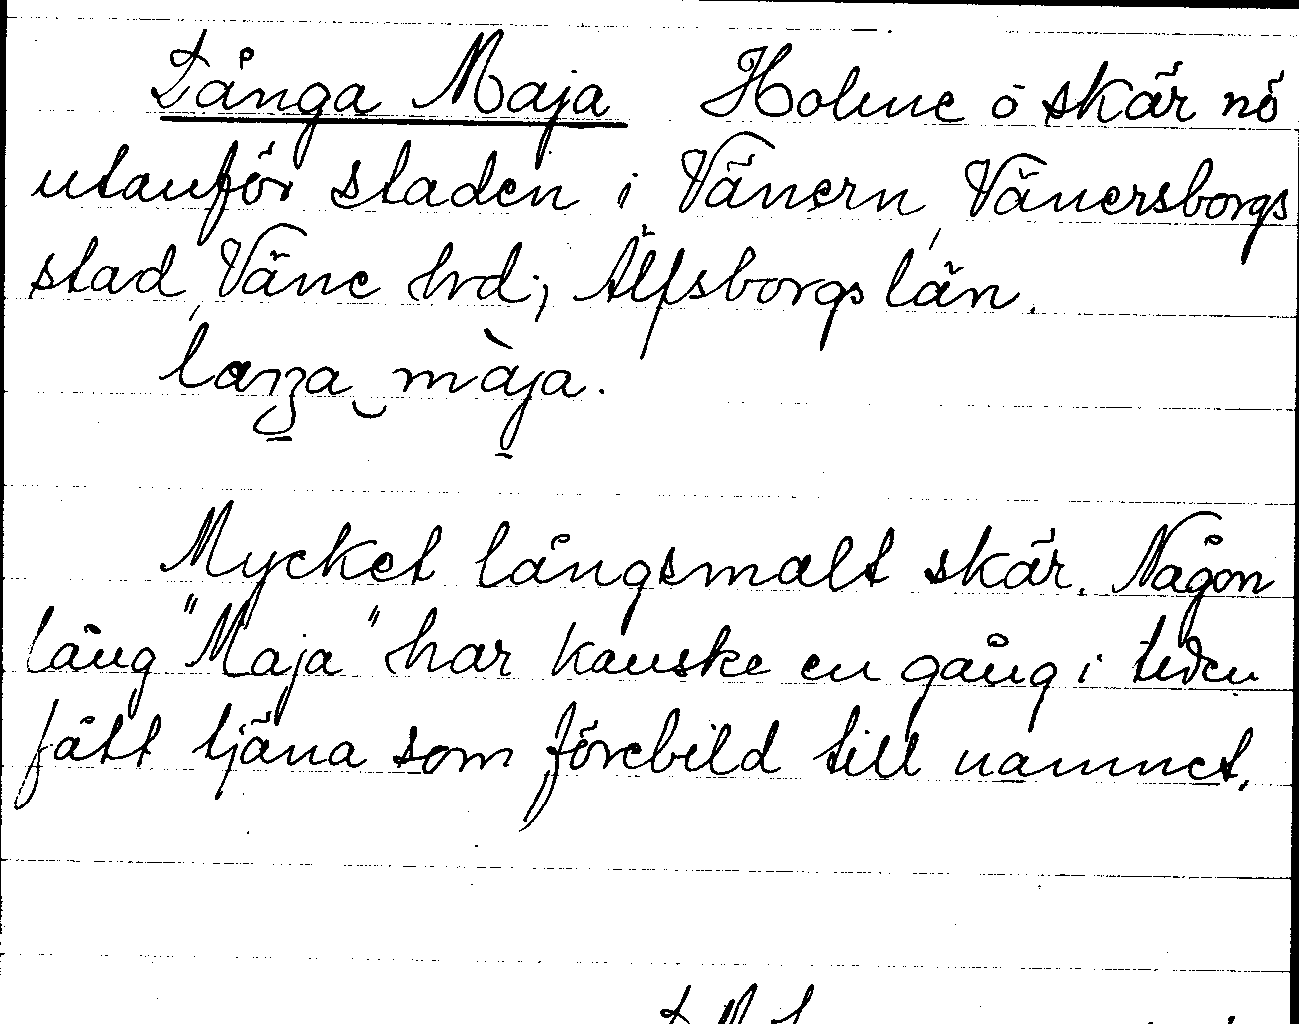 Långa Maja Holme o skär nö
utanför staden i Vänern, Vänersborgs
stad, Väne hrd; Älfsborgs län.
laŋa màja.
Mycket långsmalt skär. Någon
lång "Maja" har kanske en gång i tiden
fått tjäna som förebild till namnet.